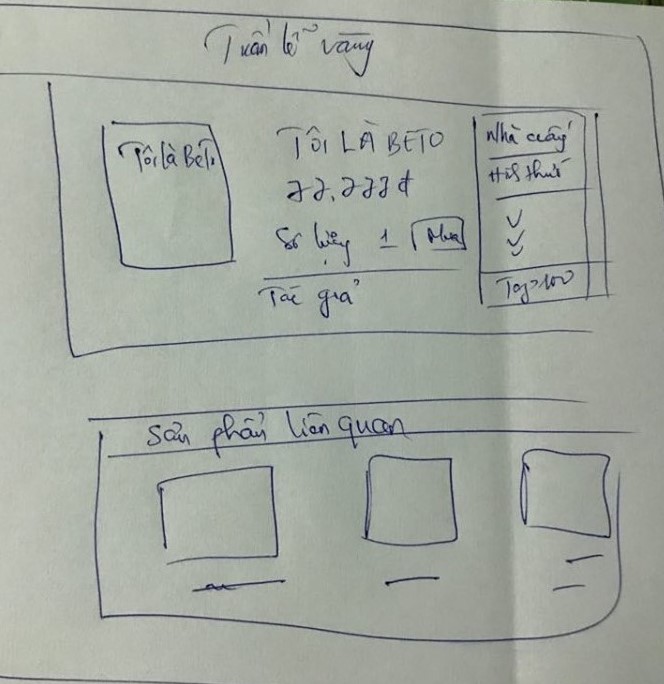 Tuần lễ vàng
Tôi Là BeTo
TÔI LÀ BETO
77.777đ
Số lượng 1 Mua
Tác giả
Nhà cung
Hình thức
Top 100
Sản phẩm liên quan